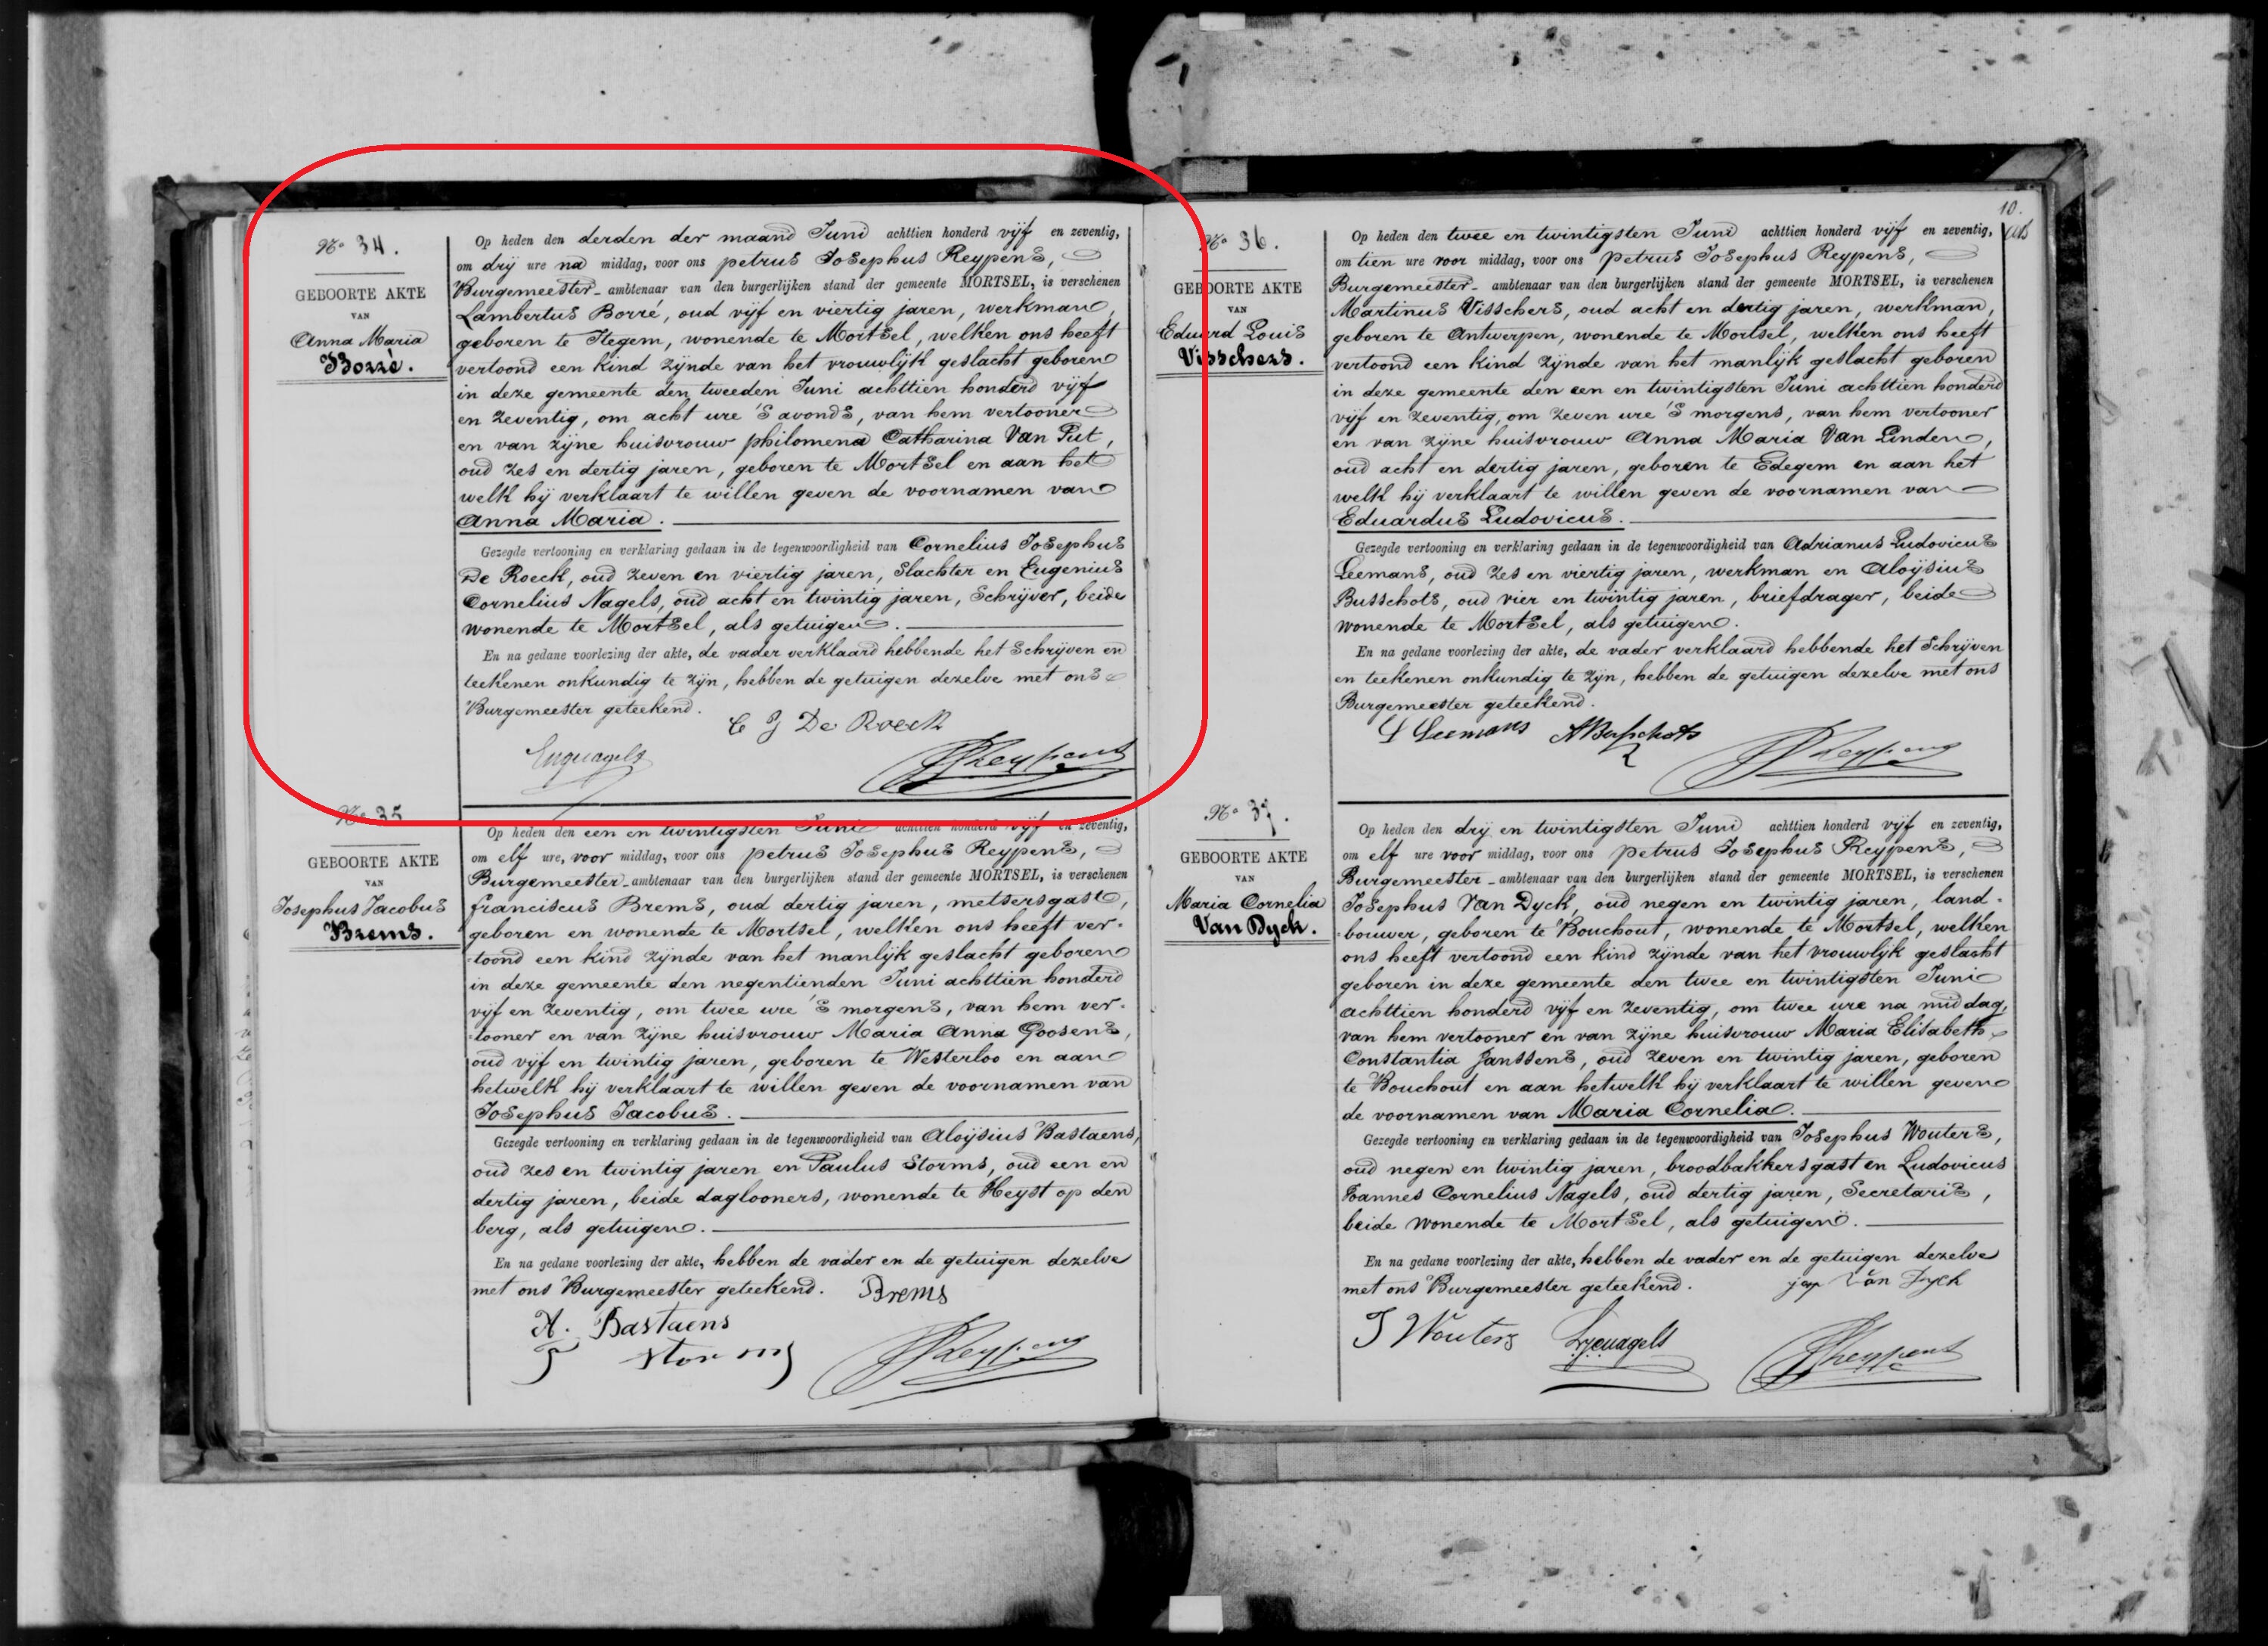 N° 34.
GEBOORTE AKTE
VAN
Anna Maria
Borré.
Op heden den derden der maand Juni achttien honderd vijf en zeventig,
om drij ure na middag, voor ons petrus Josephus Reypens,
Burgemeester - ambtenaar van den burgerlijken stand der gemeente MORTSEL, is verschenen
Lambertus Borré, oud vijf en viertig jaren, werkman,
geboren te Itegem, wonende te Mortsel, welken ons heeft
vertoond een kind zijnde van het vrouwlijk geslacht geboren
in deze gemeente den tweeden Juni achttien honderd vijf
en zeventig, om acht ure 's avonds, van hem vertooner
en van zijne huisvrouw philomena Catharina Van Put,
oud zes en dertig jaren, geboren te Mortsel en aan het
welk hij verklaart te willen geven de voornamen van
Anna Maria.
Gezegde vertooning en verklaring gedaan in de tegenwoordigheid van Cornelius Josephus
De Roeck, oud zeven en viertig jaren, Slachter en Eugenius
Cornelius Nagels, oud acht en twintig jaren, Schrijver, beide
wonende te Mortsel, als getuigen.
En na gedane voorlezing der akte, de vader verklaard hebbende het Schrijven en
teekenen onkundig te zijn, hebben de getuigen dezelve met ons
Burgemeester geteekend.
C J De Roeck
Eugnagels
PJReypens
N° 35
GEBOORTE AKTE
VAN
Josephus Jacobus
Brems.
Op heden den een en twintigsten Juni achttien honderd vijf en zeventig,
om elf ure, voor middag, voor ons petrus Josephus Reypens,
Burgemeester - ambtenaar van den burgerlijken stand der gemeente MORTSEL, is verschenen
franciscus Brems, oud dertig jaren, metsersgast,
geboren en wonende te Mortsel, welken ons heeft ver-
toond een kind zijnde van het manlijk geslacht geboren
in deze gemeente den negentienden Juni achttien honderd
vijf en zeventig, om twee ure 's morgens, van hem ver-
tooner en van zijne huisvrouw Maria Anna Goosens,
oud vijf en twintig jaren, geboren te Westerloo en aan
hetwelk hij verklaart te willen geven de voornamen van
Josephus Jacobus.
Gezegde vertooning en verklaring gedaan in de tegenwoordigheid van Aloijsius Bastaens,
oud zes en twintig jaren en Paulus Storms, oud een en
dertig jaren, beide daglooners, wonende te Heyst op den
berg, als getuigen.
En na gedane voorlezing der akte, hebben de vader en de getuigen dezelve
met ons Burgemeester geteekend. Brems
A. Bastaens
P Storms
PJReypens
10.
N° 36.
GEBOORTE AKTE
VAN
Eduard Louis
Visschers.
Op heden den twee en twintigsten Juni achttien honderd vijf en zeventig,
om tien ure voor middag, voor ons petrus Josephus Reypens,
Burgemeester - ambtenaar van den burgerlijken stand der gemeente MORTSEL, is verschenen
Martinus Visschers, oud acht en dertig jaren, werkman,
geboren te Antwerpen, wonende te Mortsel, welken ons heeft
vertoond een kind zijnde van het manlijk geslacht geboren
in deze gemeente den een en twintigsten Juni achttien honderd
vijf en zeventig, om zeven ure 's morgens, van hem vertooner
en van zijne huisvrouw Anna Maria Van Linden,
oud acht en dertig jaren, geboren te Edegem en aan het
welk hij verklaart te willen geven de voornamen van
Eduardus Ludovicus.
Gezegde vertooning en verklaring gedaan in de tegenwoordigheid van Adrianus Ludovicus
Leemans, oud zes en viertig jaren, werkman en Aloijsius
Busschots, oud vier en twintig jaren, briefdrager, beide
wonende te Mortsel, als getuigen.
En na gedane voorlezing der akte, de vader verklaard hebbende het Schrijven
en teekenen onkundig te zijn, hebben de getuigen dezelve met ons
Burgemeester geteekend.
L Leemans ABusschots
PJReypens
N° 37.
GEBOORTE AKTE
VAN
Maria Cornelia
Van Dyck.
Op heden den drij en twintigsten Juni achttien honderd vijf en zeventig,
om elf ure voor middag, voor ons petrus Josephus Reypens,
Burgemeester - ambtenaar van den burgerlijken stand der gemeente MORTSEL, is verschenen
Josephus Van Dyck, oud negen en twintig jaren, land-
bouwer, geboren te Bouchout, wonende te Mortsel, welken
ons heeft vertoond een kind zijnde van het vrouwlijk geslacht
geboren in deze gemeente den twee en twintigsten Juni
achttien honderd vijf en zeventig, om twee ure na middag,
van hem vertooner en van zijne huisvrouw Maria Elisabeth
Constantia Janssens, oud zeven en twintig jaren, geboren
te Bouchout en aan hetwelk hij verklaart te willen geven
de voornamen van Maria Cornelia.
Gezegde vertooning en verklaring gedaan in de tegenwoordigheid van Josephus Wouters,
oud negen en twintig jaren, broodbakkersgast en Ludovicus
Joannes Cornelius Nagels, oud dertig jaren, Secretaris,
beide wonende te Mortsel, als getuigen.
En na gedane voorlezing der akte, hebben de vader en de getuigen dezelve
met ons Burgemeester geteekend. jos Van Dyck
J Wouters Ljcnagels
PJReypens